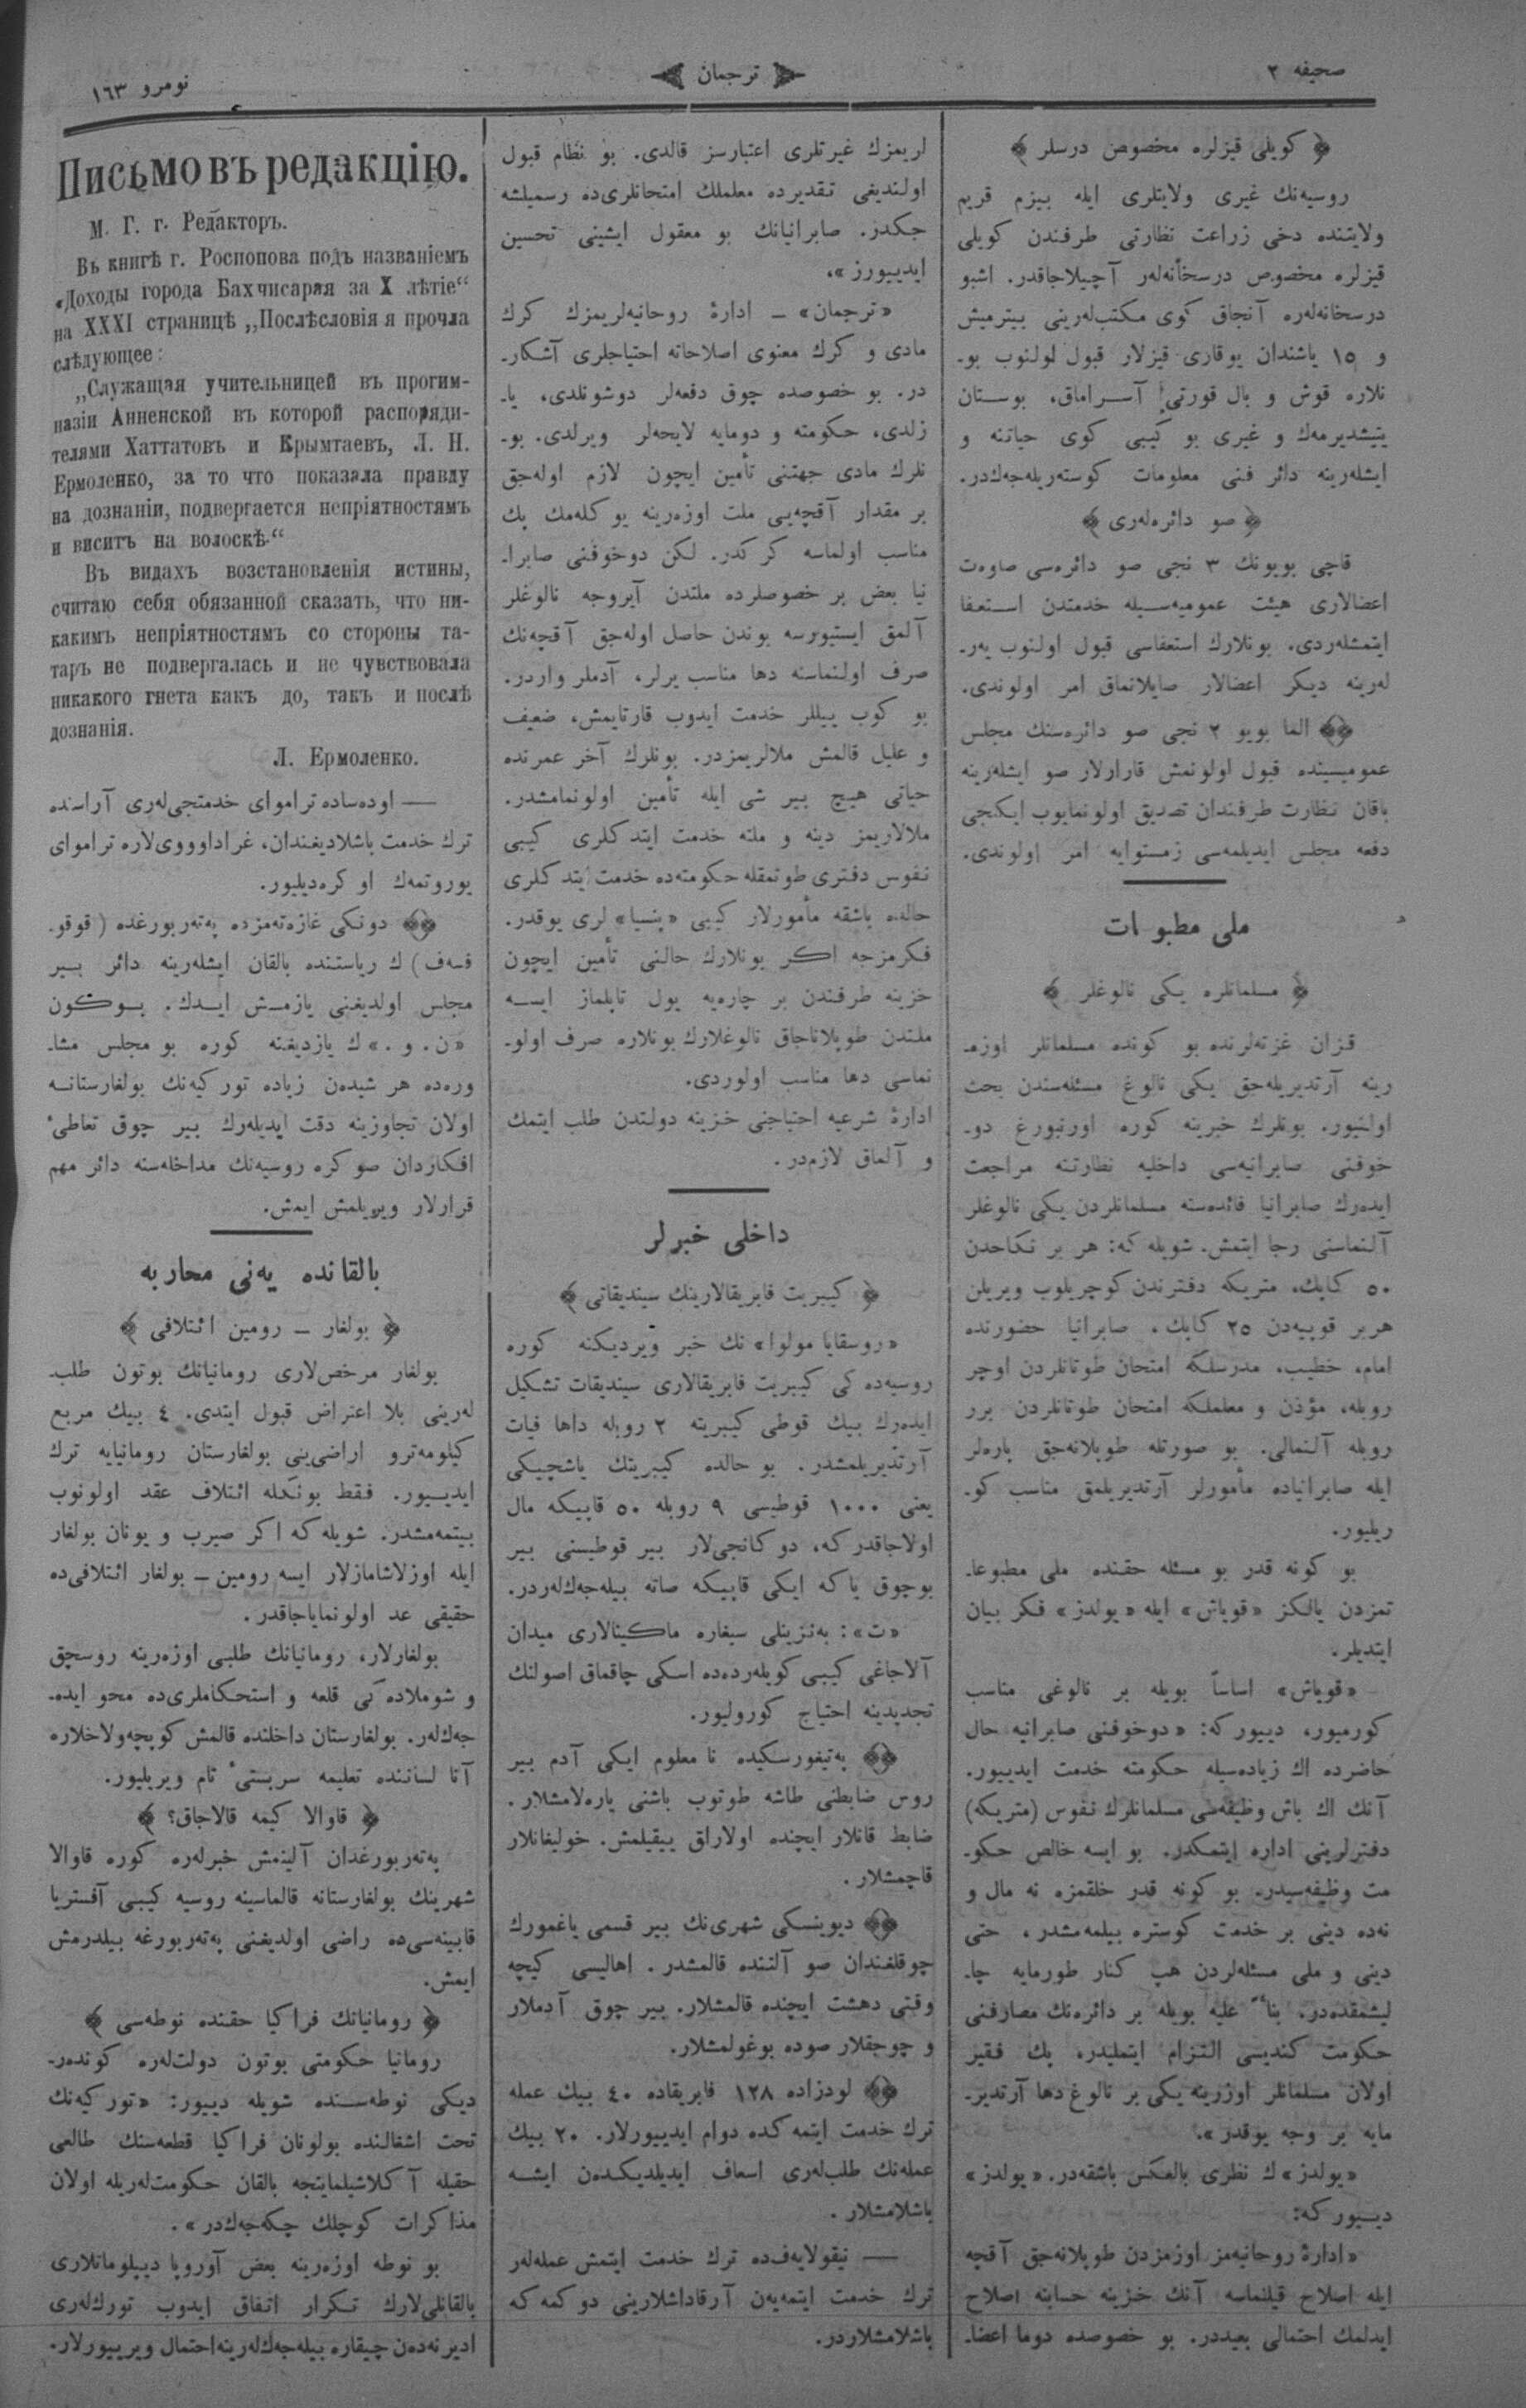 صحیفه ۲
ترجمان
نومرو ۱٦۳
﴿ كویلی قیزلره مخصوص درسلر ﴾
روسیه‌نك غیری ولایتلری ایله بیزم قریم
ولایتنده دخی زراعت نظارتی طرفندن كویلی
قیزلره مخصوص درسخانه‌لەر آچیلاجاقدر. اشبو
درسخانه‌لەره آنجاق كوی مكتب‌لەرینی بیترمیش
و ۱۵ یاشندان یوقاری قیزلار قبول اولنوب بو-
نلاره قوش و بال قورتی آسراماق، بوستان
یتیشدیرمەك و غیری بو كیبی كوی حیاتنه و
ایشلەرینه دائر فنی معلومات كوستەریلەجەكدر.
﴿ صو دائره‌لەری ﴾
قاچی بویونك ۳ نجی صو دائره‌سی صاوەت
اعضالاری هیئت عمومیه‌سیله خدمتدن استعفا
ایتمشلەردی. بونلارك استعفاسی قبول اولنوب یەر-
لەرینه دیكر اعضالار صایلانماق امر اولوندی.
﴿﴾ الما بویو ۲ نجی صو دائره‌سنك مجلس
عمومیسینده قبول اولونمش قارارلار صو ایشلەرینه
باقان نظارت طرفندان تصدیق اولونمایوب ایكنجی
دفعه مجلس ایدیلمەسی زمستوایه امر اولوندی.
ملی مطبوعات
﴿ مسلمانلره یكی نالوغلر ﴾
قزان غزتەلرنده بو كونده مسلمانلر اوزە-
رینه آرتدیریلەجق یكی نالوغ مسئلەسندن بحث
اولنیور. بونلرك خبرینه كوره اورنبورغ دو-
خوفنی صابرانیه‌سی داخلیه نظارتنه مراجعت
ایدەرك صابرانیا فائدەسنه مسلمانلردن یكی نالوغلر
آلنماسنی رجا ایتمش. شویله كه: هر بر نكاحدن
۵۰ كاپك، متریكه دفترندن كوچریلوب ویریلن
هربر قوپیه‌دن ۲۵ كاپك، صابرانیا حضورنده
امام، خطیب، مدرسلكه امتحان طوتانلردن اوچر
روبله، مؤذن و معلملكه امتحان طوتانلردن برر
روبله آلنمالی. بو صورتله طوپلانەجق پارەلر
ایله صابرانیاده مأمورلر آرتدیریلمق مناسب كو-
ریلیور.
بو كونه قدر بو مسئله حقنده ملی مطبوعا-
تمزدن یالكز «قویاش» ایله «یولدز» فكر بیان
ایتدیلر.
«قویاش» اساساً بویله بر نالوغی مناسب
كورمیور، دییور كه: «دوخوفنی صابرانیه حال
حاضرده اك زیادەسیله حكومته خدمت ایدییور.
آنك اك باش وظیفەسی مسلمانلرك نفوس (متریكه)
دفترلرینی اداره ایتمكدر. بو ایسه خالص حكو-
مت وظیفەسیدر. بو كونه قدر خلقمزه نه مال و
نەده دینی بر خدمت كوستره بیلمەمشدر، حتی
دینی و ملی مسئلەلردن هپ كنار طورمایه چا-
لیشمقدەدر. بناءً علیه بویله بر دائرەنك مصارفنی
حكومت كندیسی التزام ایتملیدر، پك فقیر
اولان مسلمانلر اوزرینه یكی بر نالوغ دها آرتدیر-
مایه بر وجه یوقدر».
«یولدز»ك نظری بالعكس باشقەدر. «یولدز»
دییور كه:
«ادارهٔ روحانیه‌مز اوزمزدن طوپلانەجق آقچه
ایله اصلاح قیلنماسه آنك خزینه حسابنه اصلاح
ایدلمك احتمالی بعیددر. بو خصوصده دوما اعضا-
لریمزك غیرتلری اعتبارسز قالدی. بو نظام قبول
اولندیغی تقدیرده معلملك امتحانلری‌ده رسمیلشه
جكدر. صابرانیانك بو معقول ایشینی تحسین
ایدییورز».
«ترجمان» – ادارهٔ روحانیه‌لریمزك كرك
مادی و كرك معنوی اصلاحاته احتیاجلری آشكار-
در. بو خصوصده چوق دفعەلر دوشونلدی، یا-
زلدی، حكومته و دومایه لایحەلر ویرلدی. بو-
نلرك مادی جهتنی تأمین ایچون لازم اولەجق
بر مقدار آقچەیی ملت اوزەرینه یوكلەمك پك
مناسب اولماسه كركدر. لكن دوخوفنی صابرا-
نیا بعض بر خصوصلرده ملتدن آیروجه نالوغلر
آلمق ایستیورسه بوندن حاصل اولەجق آقچەنك
صرف اولنماسنه دها مناسب یرلر، آدملر واردر.
بو كوب ییللر خدمت ایدوب قارتایمش، ضعیف
و علیل قالمش ملالریمزدر. بونلرك آخر عمرنده
حیاتی هیچ بیر شی ایله تأمین اولونمامشدر.
ملالاریمز دینه و ملته خدمت ایتدكلری كیبی
نفوس دفتری طوتمقله حكومتەده خدمت ایتدكلری
حالده باشقه مأمورلار كیبی «پنسیا» لری یوقدر.
فكرمزجه اكر بونلارك حالنی تأمین ایچون
خزینه طرفندن بر چارەیه یول تاپلماز ایسه
ملتدن طوپلاناجاق نالوغلارك بونلاره صرف اولو-
نماسی دها مناسب اولوردی.
ادارهٔ شرعیه احتیاجنی خزینه دولتدن طلب ایتمك
و آلماق لازمدر.
داخلی خبرلر
﴿ كیبریت فابریقالارینك سیندیقاتی ﴾
«روسقایا مولوا» نك خبر ویردیكنه كوره
روسیەدەكی كیبریت فابریقالاری سیندیقات تشكیل
ایدەرك بیك قوطی كیبریته ۲ روبله داها فیات
آرتدیریلمشدر. بو حالده كیبریتك یاشچیكی
یعنی ۱۰۰۰ قوطیسی ۹ روبله ۵۰ قاپیكه مال
اولاجاقدركه، دوكانجی‌لار بیر قوطیسنی بیر
بوچوق یاكه ایكی قاپیكه صاته بیلەجەك‌لەردر.
«ت»: بەنزینلی سیغاره ماكینالاری میدان
آلاجاغی كیبی كویلەردەده اسكی چاقماق اصولنك
تجدیدینه احتیاج كورولیور.
﴿﴾ پەتیغورسكیده نا معلوم ایكی آدم بیر
روس ضابطنی طاشه طوتوب باشنی یارەلامشلار.
ضابط قانلار ایچنده اولاراق ییقیلمش. خولیغانلار
قاچمشلار.
﴿﴾ دیوینسكی شهری‌نك بیر قسمی یاغمورك
چوقلغندان صو آلتنده قالمشدر. اهالیسی كیچه
وقتی دهشت ایچنده قالمشلار. بیر چوق آدملار
و چوجقلار صوده بوغولمشلار.
﴿﴾ لودزاده ۱۲۸ فابریقاده ٤۰ بیك عمله
ترك خدمت ایتمەكده دوام ایدییورلار. ۲۰ بیك
عملەنك طلب‌لەری اسعاف ایدیلدیكدەن ایشه
باشلامشلار.
— نیقولایەف‌ده ترك خدمت ایتمش عملەلەر
ترك خدمت ایتمەیەن آرقاداشلارینی دوكمەكه
باشلامشلاردر.
Письмо въ редакцію.
М. Г. г. Редакторъ.
Въ книгѣ г. Роспопова подъ названіемъ
„Доходы города Бахчисарая за X лѣтіе“
на XXXI страницѣ „Послѣсловія я прочла
слѣдующее:
„Служащая учительницей въ прогим-
назіи Анненской въ которой распоряди-
телями Хаттатовъ и Крымтаевъ, Л. Н.
Ермоленко, за то что показала правду
на дознаніи, подвергается непріятностямъ
и виситъ на волоскѣ.“
Въ видахъ возстановленія истины,
считаю себя обязанной сказать, что ни-
какимъ непріятностямъ со стороны та-
таръ не подвергалась и не чувствовала
никакого гнета какъ до, такъ и послѣ
дознанія.
Л. Ермоленко.
— اودەساده تراموای خدمتجی‌لەری آراسنده
ترك خدمت باشلادیغندان، غراداووی‌لاره تراموای
یوروتمەك اوكرەدیلیور.
﴿﴾ دونكی غازەتەمزده پەتەربورغده (قوقو-
فسەف)ك ریاستنده بالقان ایشلەرینه دائر بیر
مجلس اولدیغنی یازمش ایدك. بوكون
«ن. و.»ك یازدیغنه كوره بو مجلس مشا-
ورەده هر شیدەن زیاده توركیه‌نك بولغارستانه
اولان تجاوزینه دقت ایدیلەرك بیر چوق تعاطیٔ
افكاردان صوكره روسیه‌نك مداخلەسنه دائر مهم
قرارلار ویریلمش ایمش.
بالقانده یەنی محاربه
﴿ بولغار – رومین ائتلافی ﴾
بولغار مرخص‌لاری رومانیانك بوتون طلب-
لەرینی بلا اعتراض قبول ایتدی. ٤ بیك مربع
كیلومەترو اراضی‌یی بولغارستان رومانیایه ترك
ایدییور. فقط بونكله ائتلاف عقد اولونوب
بیتمەمشدر. شویله كه اكر صیرب و یونان بولغار
ایله اوزلاشامازلار ایسه رومین – بولغار ائتلافی‌ده
حقیقی عد اولونمایاجاقدر.
بولغارلار، رومانیانك طلبی اوزەرینه روسچق
و شوملادەكی قلعه و استحكاملری‌ده محو ایدە-
جەك‌لەر. بولغارستان داخلنده قالمش كوپچەولاخلاره
آنا لساننده تعلیمه سربستیٔ تام ویریلیور.
﴿ قاوالا كیمه قالاجاق؟ ﴾
پەتەربورغدان آلینمش خبرلەره كوره قاوالا
شهرینك بولغارستانه قالماسینه روسیه كیبی آفستریا
قابینه‌سی‌ده راضی اولدیغنی پەتەربورغه بیلدرمش
ایمش.
﴿ رومانیانك فراكیا حقنده نوطەسی ﴾
رومانیا حكومتی بوتون دولت‌لەره كوندەر-
دیكی نوطەسنده شویله دییور: «توركیه‌نك
تحت اشغالنده بولونان فراكیا قطعەسنك طالعی
حقیله آكلاشیلماینجه بالقان حكومت‌لەریله اولان
مذاكرات كوچلك چكەجەكدر».
بو نوطه اوزەرینه بعض آوروپا دیپلوماتلاری
بالقانلی‌لارك تكرار اتفاق ایدوب تورك‌لەری
ادیرنەدەن چیقاره بیلەجەك‌لەرینه احتمال ویرییورلار.